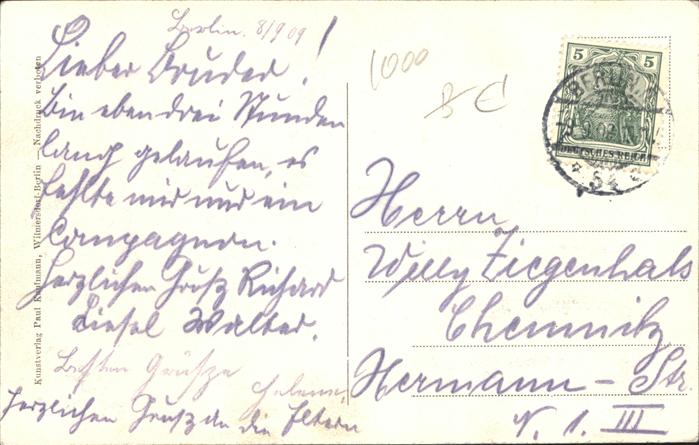 Berlin. 8/9 09
Lieber Bruder!
Bin eben drei Stunden
lang gelaufen, es
fehlte mir nur ein
Compagnon.
Herzlichen Grusz Richard
Liesel Walter.
Besten Grüsze
Helene.
Herzlichen Grusz an die Eltern
Kunstverlag Paul Kaufmann, Wilmersdorf-Berlin — Nachdruck verboten
1000
5 €
5 5
DEUTSCHES REICH
BERLIN
54
Herrn
Willy Ziegenhals
Chemnitz
Hermann-Str.
N. 1. III